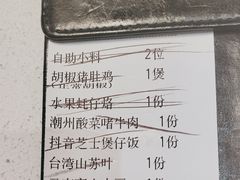 自助小料 2位
胡椒猪肚鸡 1煲
(正常胡椒)
水果蚝仔烙 1份
潮州酸菜啫牛肉 1份
抖音芝士煲仔饭 1份
台湾山苏叶 1份